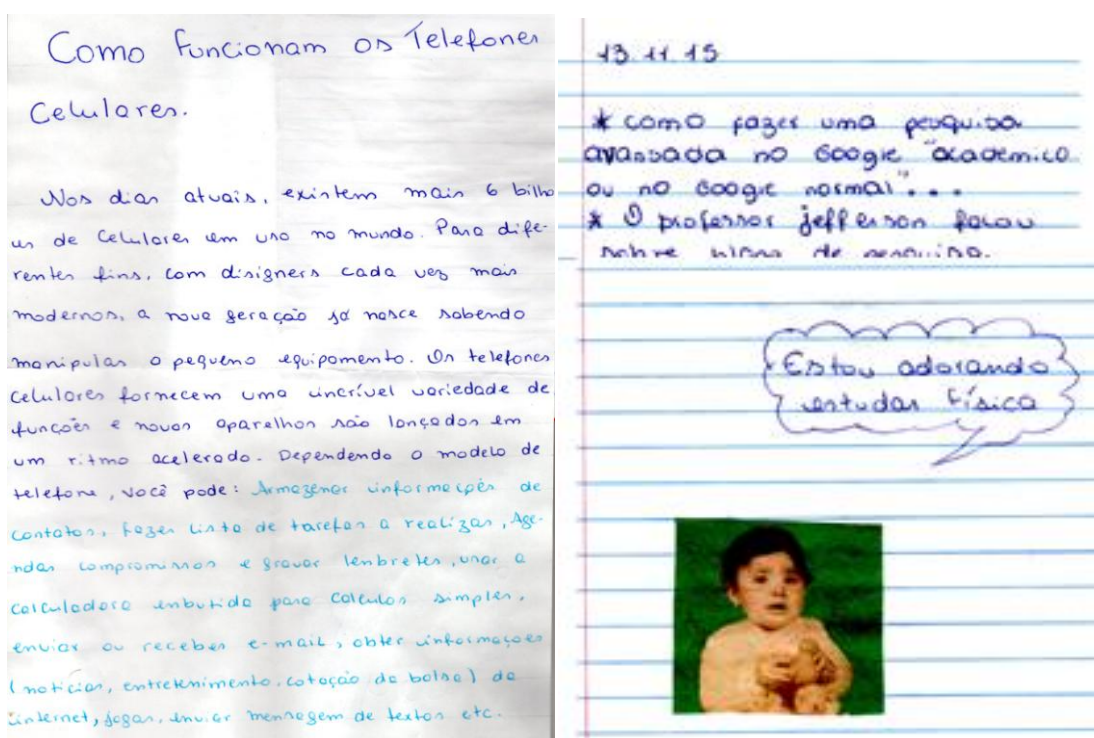 Como funcionam os Telefones
Celulares.
Nos dias atuais, existem mais 6 bilho
es de Celulares em uso no mundo. Para dife-
rentes fins, com disigners cada vez mais
modernos, a nova geração já nasce sabendo
manipular o pequeno equipamento. Os telefones
celulares fornecem uma incrível variedade de
funções e novos aparelhos são lançados em
um ritmo acelerado. Dependendo o modelo de
telefone, você pode: Armazenar informações de
contatos, fazer lista de tarefas a realizar, Age-
ndar compromissos e gravar lenbretes, usar a
calculadora enbutida para calculos simples,
enviar ou receber e-mail, obter informações
(notícias, entretenimento, cotação da bolsa) da
internet, jogar, enviar mensagem de textos etc.
13.11.15
* como fazer uma pesquisa
avansada no Google "academico
ou no Google normal"...
* O professor jefferson falou
sobre de pesquisa.
Estou adorando
estudar Física